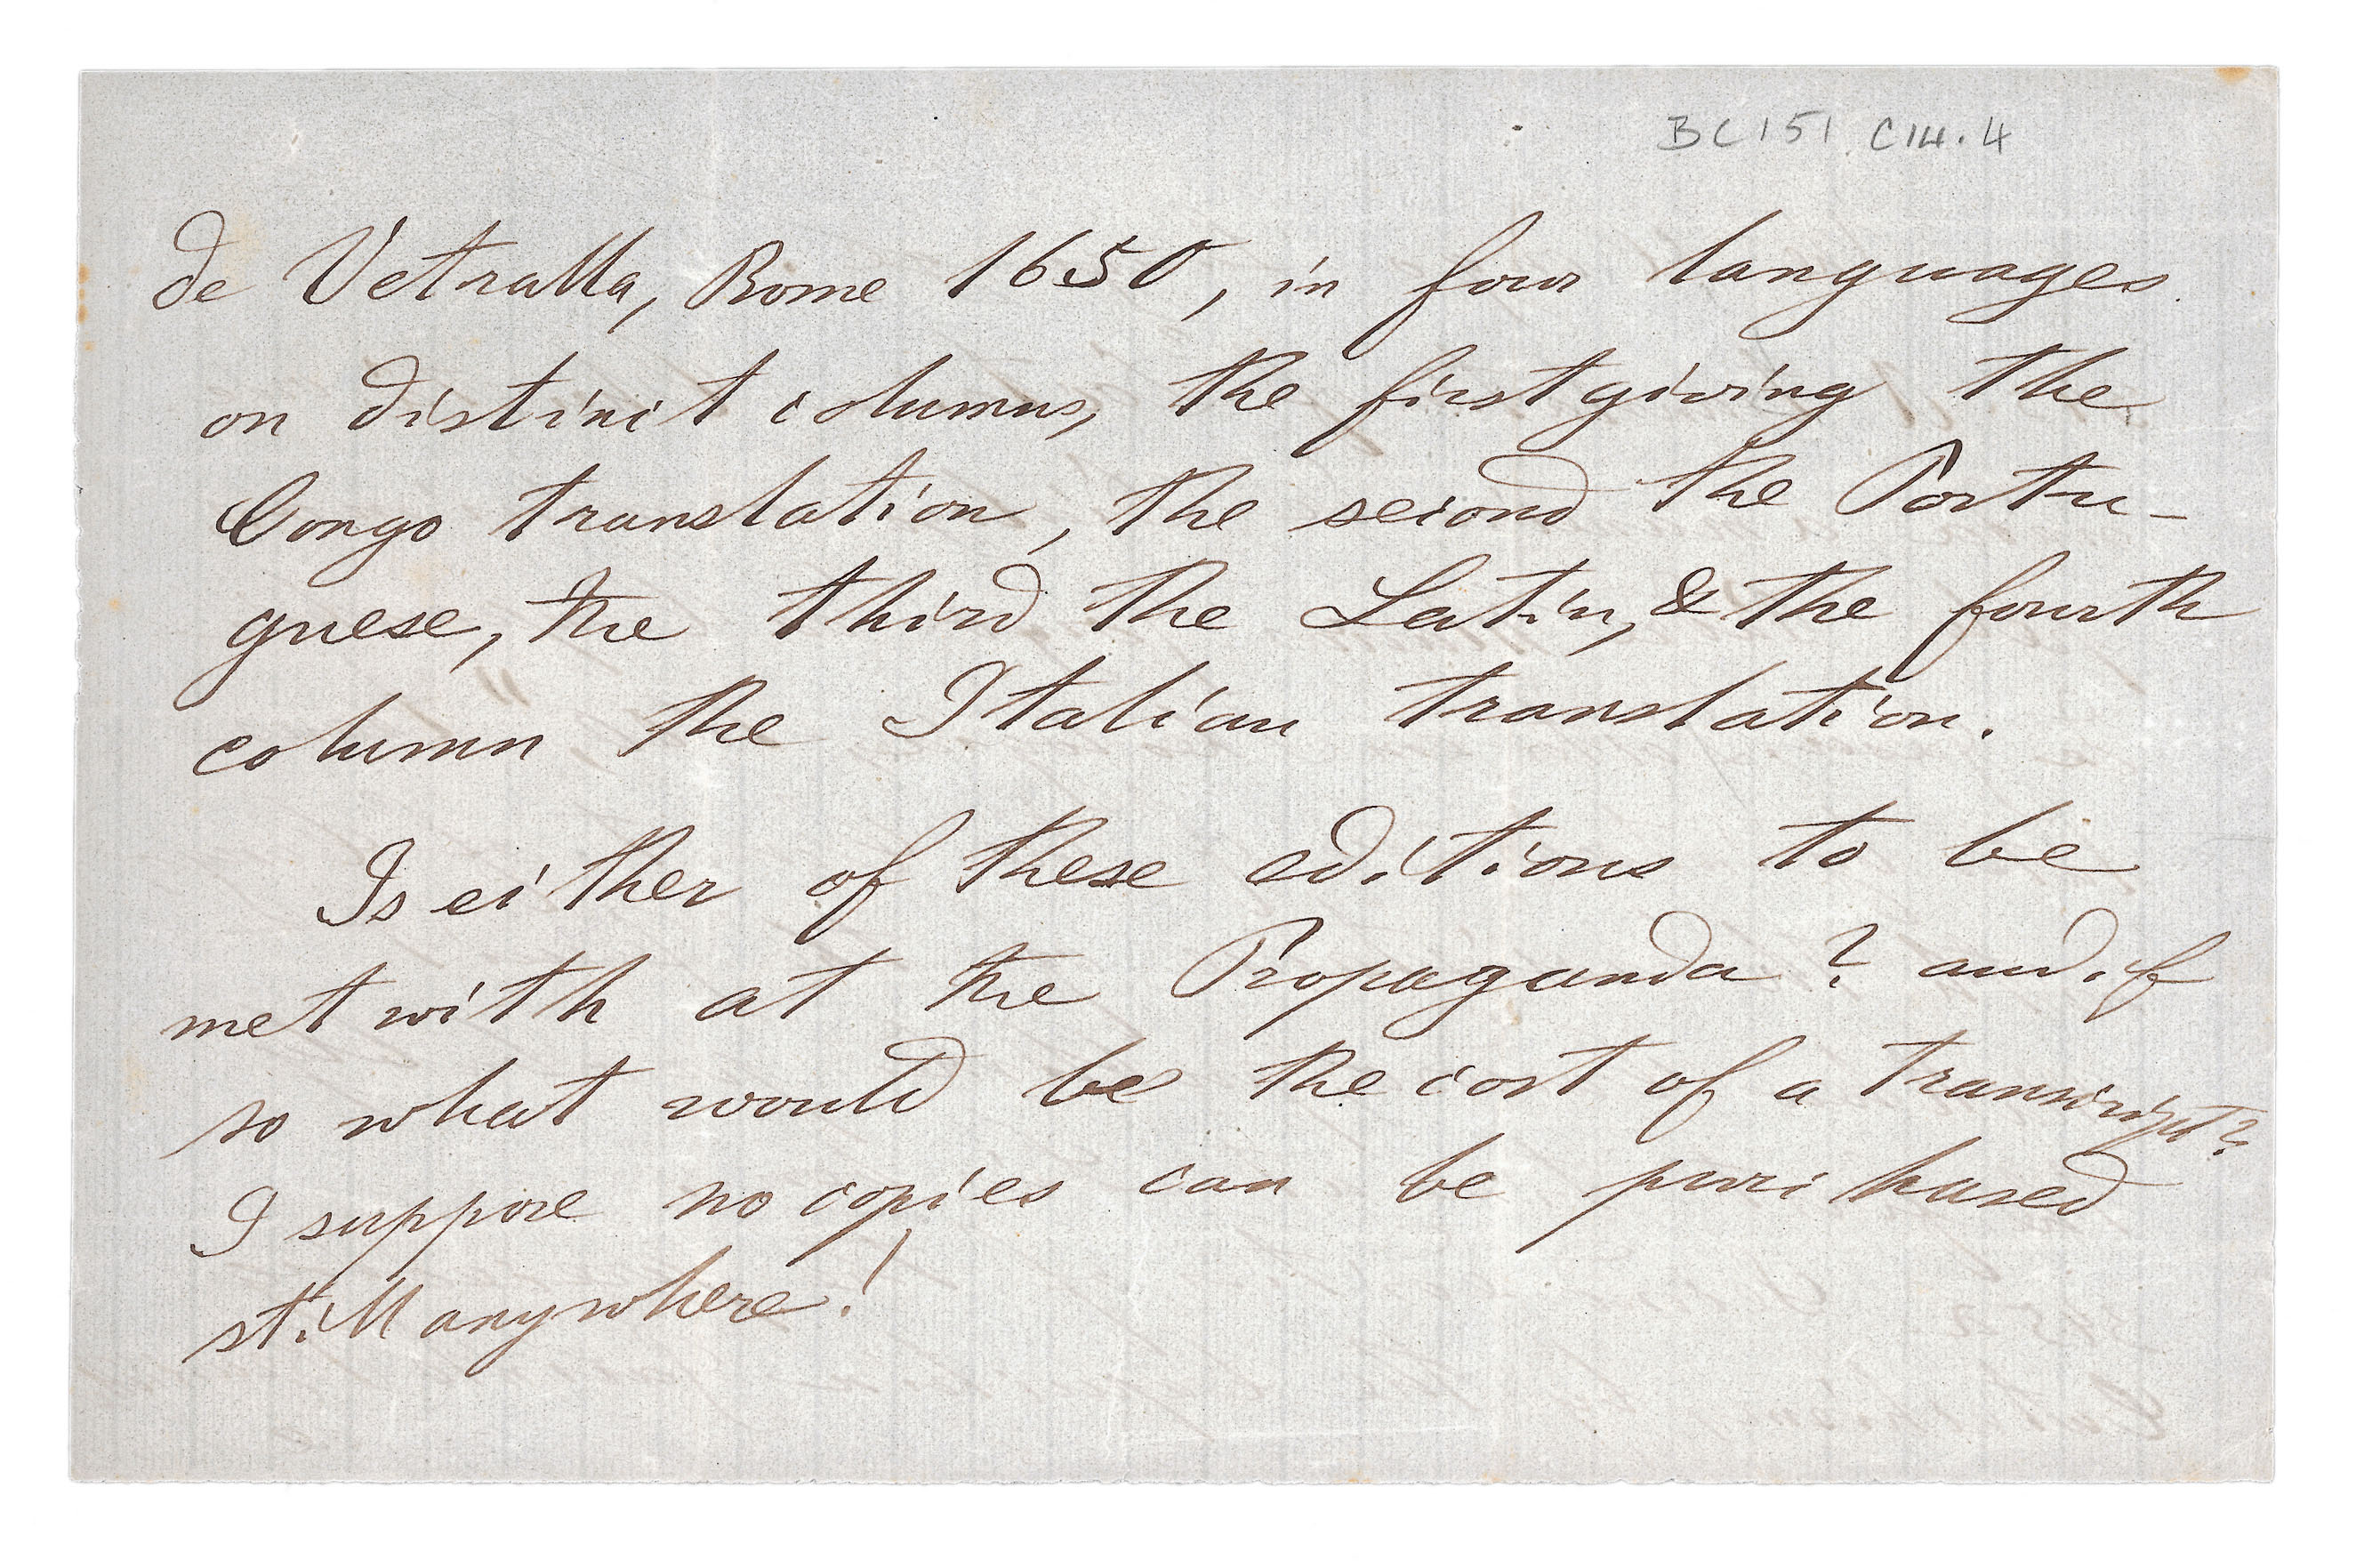 BC151 C14.4
de Vetralla, Rome 1650, in four languages
on distinct columns, the first giving the
Congo translation, the second the Portu-
guese, the third the Latin, & the fourth
column the Italian translation.
Is either of these editions to be
met with at the Propaganda? and if
so what would be the cost of a transcript?
I suppose no copies can be purchased
still anywhere!